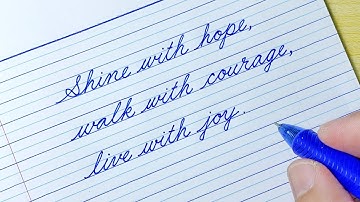 Shine with hope,
walk with courage,
live with joy.